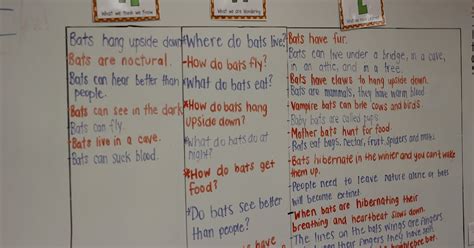 What we think we know
What we are wondering
What we have Learned
Bats hang upside down
Bats are noctural.
Bats can hear better than
people.
Bats can see in the dark
Bats can fly.
Bats live in a cave.
Bats can suck blood.
Where do bats live?
How do bats fly?
What do bats eat?
How do bats hang
upside down?
What do bats do at
night?
How do bats get
food?
Do bats see better
than people?
Bats have fur.
Bats can live under a bridge, in a cave,
in an attic, and in a tree.
Bats have claws to hang upside down.
Bats are mammals, they have warm blood
Vampire bats can bite cows and birds
Baby bats are called pups
Mother bats hunt for food
Bats eat bugs, nectar, fruit, spiders and
Bats hibernate in the winter and you can't wake
them up.
People need to leave nature alone or bats
will become extinct.
When bats are hibernating their
breathing and heartbeat slows down.
The lines on the bats wings are fingers
fingers they have a